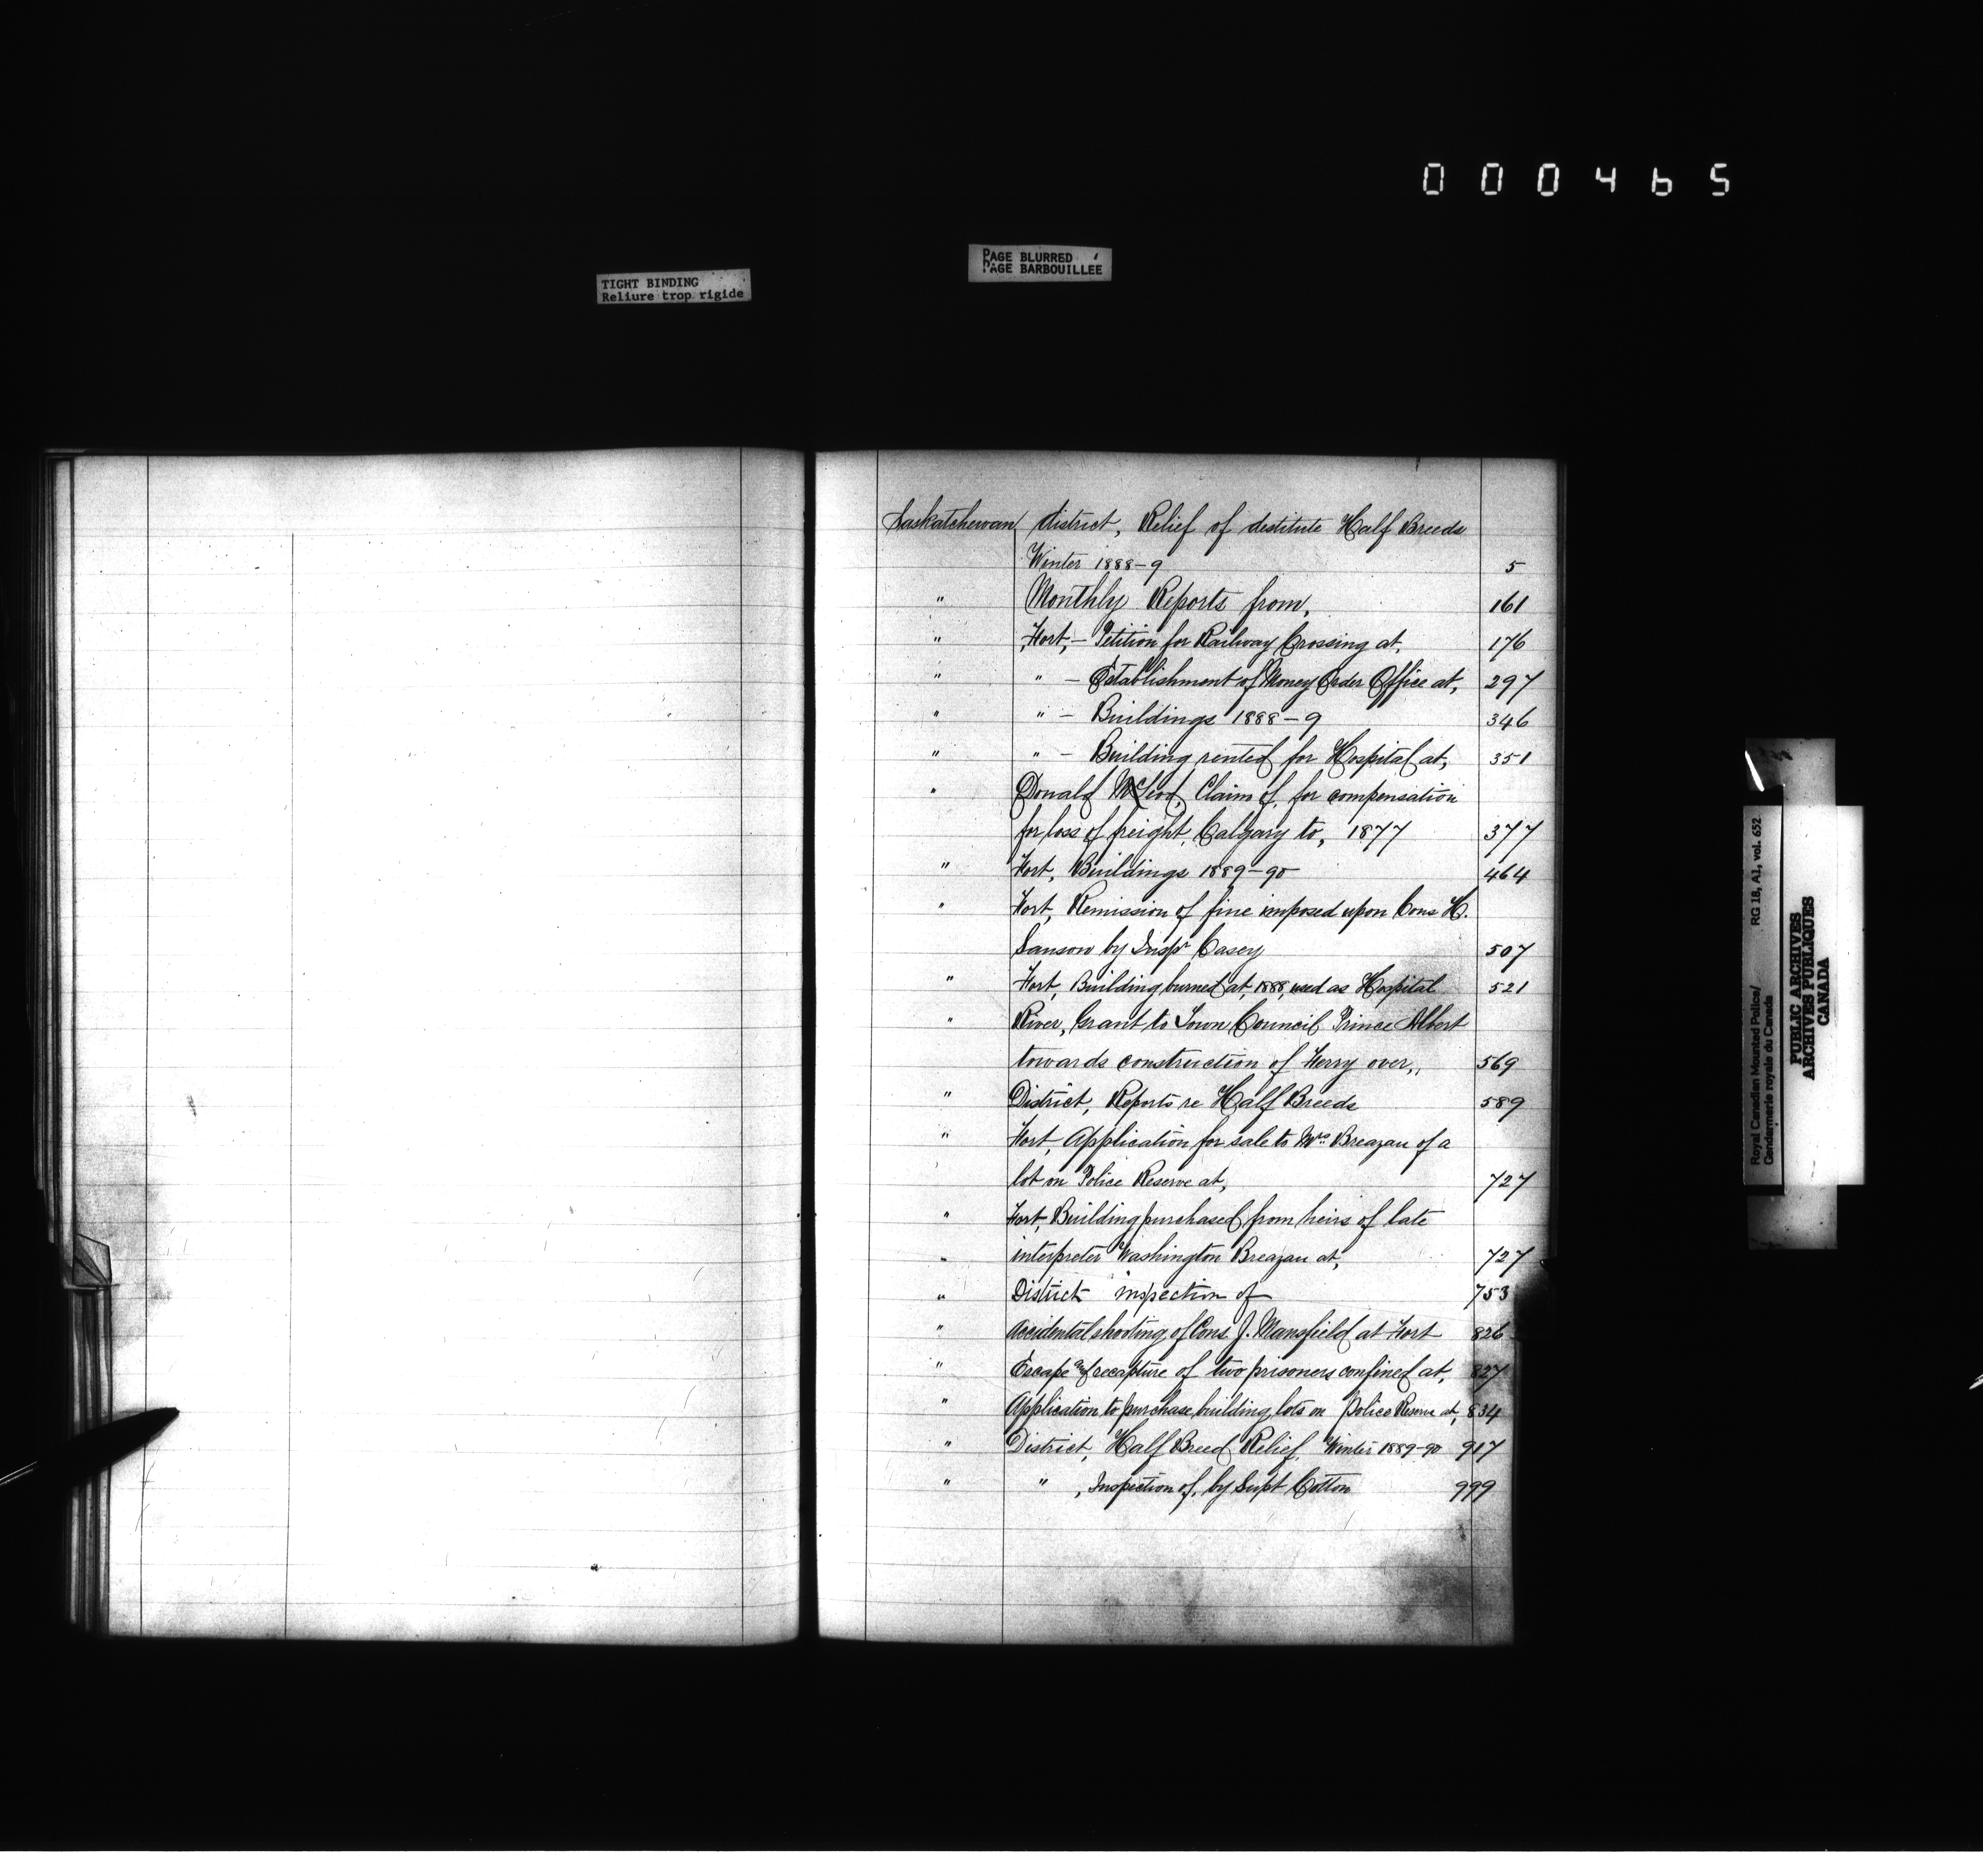 000465
PAGE BLURRED
PAGE BARBOUILLÉE
TIGHT BINDING
Reliure trop rigide
Saskatchewan district, Relief of destitute Half Breeds
Winter 1888-9 5
" Monthly Reports from, 161
" Fort, - Petition for Railway Crossing at, 176
" " - Establishment of Money Order Office at, 297
" " - Buildings 1888-9 346
" " - Building rented for Hospital at, 351
" Donald McLeod, Claim of, for compensation
for loss of freight, Calgary to, 1877 377
" Fort, Buildings 1889-90 464
" Fort, Remission of fine imposed upon Cons H.
Sanson by Inspr Casey 507
" Fort, Building burned at, 1888, used as Hospital 521
" River, Grant to Town Council Prince Albert
towards construction of Ferry over,, 569
" District, Reports re Half Breeds 589
" Fort, Application for sale to Mrs. Breazau of a
lot on Police Reserve at, 727
" Fort, Building purchased from heirs of late
" interpreter Washington Breazau at, 727
" District inspection of 753
" Accidental shooting of Cons. J. Mansfield at Fort 826
" Escape and recapture of two prisoners confined at, 827
" Application to purchase building lots on Police Reserve at, 834
" District, Half Breed Relief, Winter 1889-90 917
" " , Inspection of, by Supt Cotton 999
Royal Canadian Mounted Police/
Gendarmerie royale du Canada
RG 18, A1, vol. 652
PUBLIC ARCHIVES
ARCHIVES PUBLIQUES
CANADA